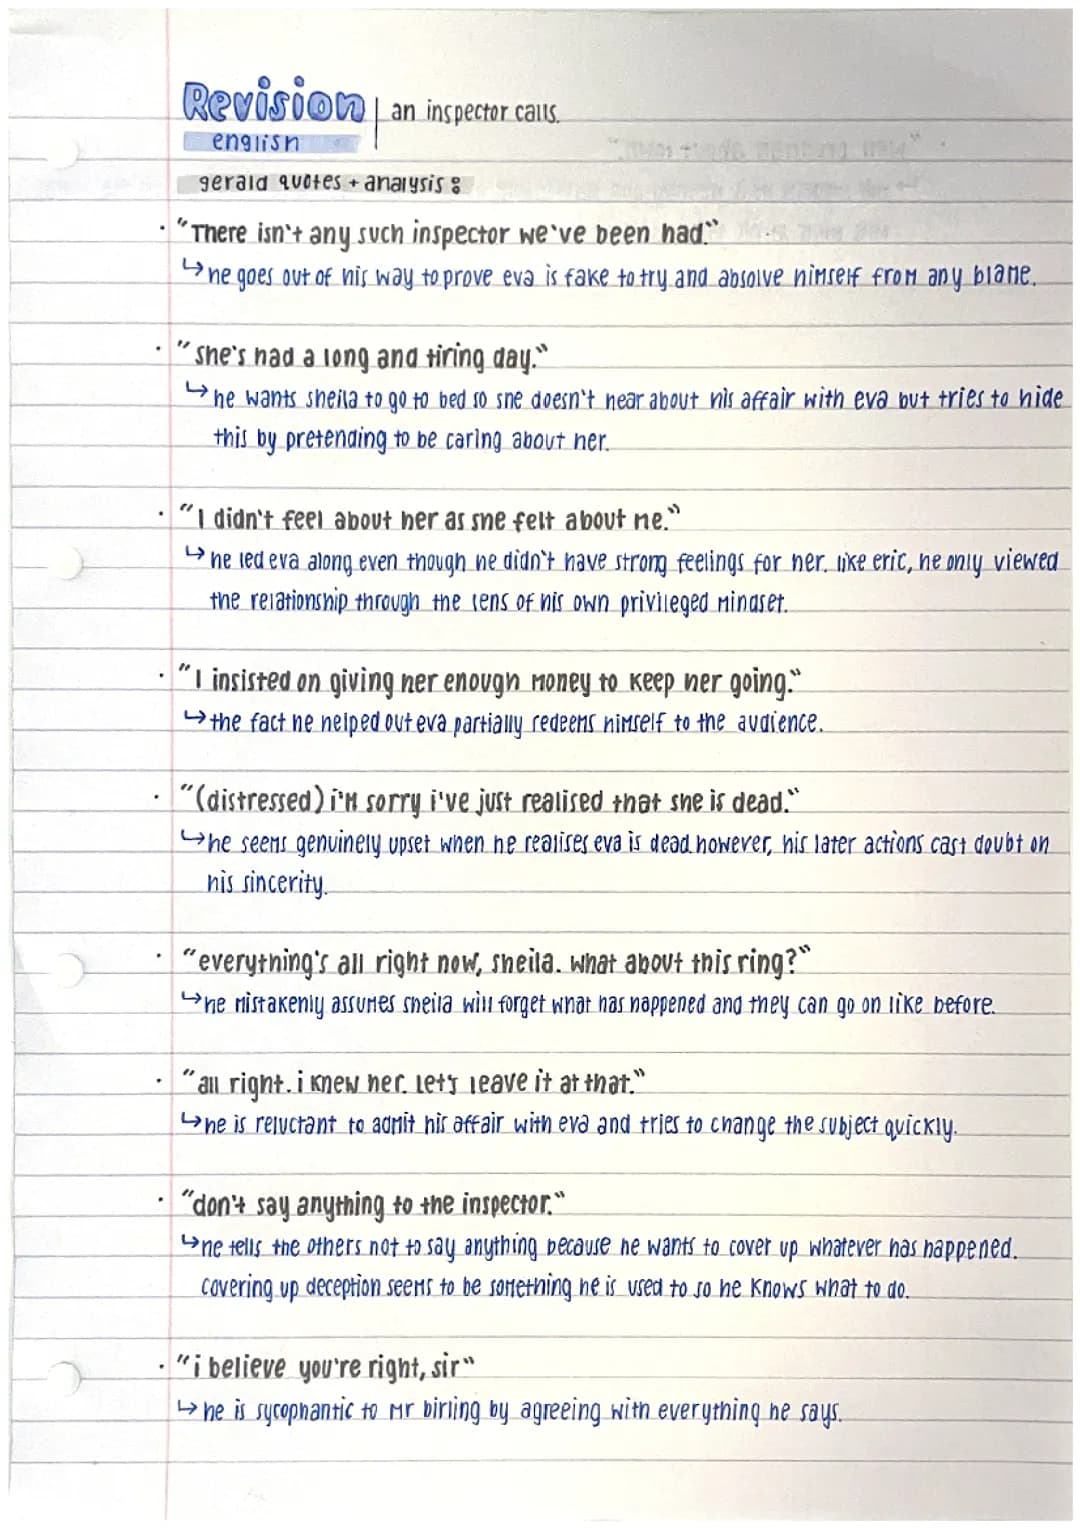 Revision | an inspector calls.
english
gerald quotes + analysis:
· "There isn't any such inspector we've been had."
↳ he goes out of his way to prove eva is fake to try and absolve himself from any blame.
· "she's had a long and tiring day."
↳ he wants sheila to go to bed so she doesn't hear about his affair with eva but tries to hide
this by pretending to be caring about her.
· "I didn't feel about her as she felt about me."
↳ he led eva along even though he didn't have strong feelings for her. like eric, he only viewed
the relationship through the lens of his own privileged mindset.
· "I insisted on giving her enough money to keep her going."
↳ the fact he helped out eva partially redeems himself to the audience.
· "(distressed) i'm sorry i've just realised that she is dead."
↳ he seems genuinely upset when he realises eva is dead. however, his later actions cast doubt on
his sincerity.
· "everything's all right now, sheila. what about this ring?"
↳ he mistakenly assumes sheila will forget what has happened and they can go on like before.
· "all right. i knew her. let's leave it at that."
↳ he is reluctant to admit his affair with eva and tries to change the subject quickly.
· "don't say anything to the inspector."
↳ he tells the others not to say anything because he wants to cover up whatever has happened.
covering up deception seems to be something he is used to so he knows what to do.
· "i believe you're right, sir"
↳ he is sycophantic to Mr birling by agreeing with everything he says.